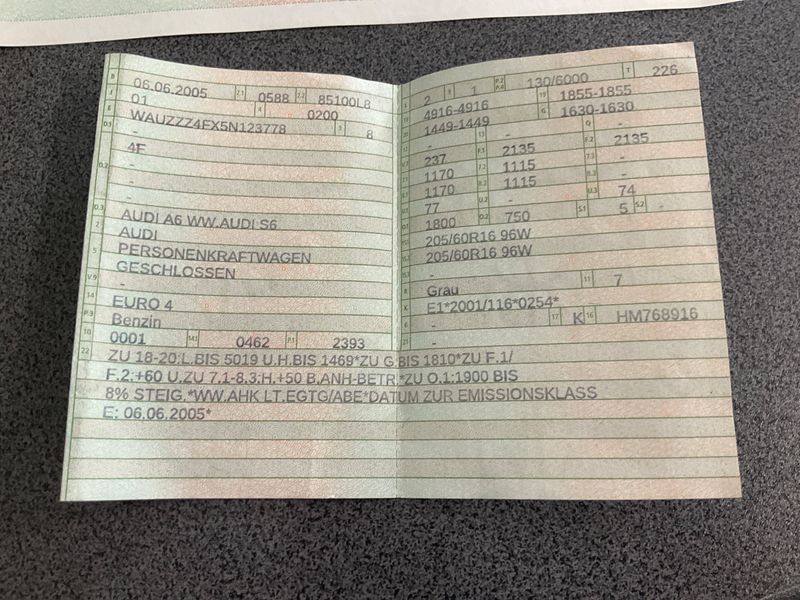 B 06.06.2005 2.1 0588 2.2 85100L8
J 01 4 0200
E WAUZZZ4FX5N123778 3 8
D.1 -
4F
D.2 -
-
-
D.3 AUDI A6 WW.AUDI S6
2 AUDI
5 PERSONENKRAFTWAGEN
GESCHLOSSEN
V.9 -
14 EURO 4
P.3 Benzin
10 0001 14.1 0462 P.1 2393
22 ZU 18-20:L.BIS 5019 U.H.BIS 1469*ZU G.BIS 1810*ZU F.1/
F.2:+60 U.ZU 7.1-8.3:H.+50 B.ANH-BETR.*ZU O.1:1900 BIS
8% STEIG.*WW.AHK LT.EGTG/ABE*DATUM ZUR EMISSIONSKLASS
E: 06.06.2005*
L 2 9 1 P.2 P.4 130/6000 T 226
18 4916-4916 19 1855-1855
20 1449-1449 G 1630-1630
12 - 13 - Q -
V.7 237 F.1 2135 F.2 2135
7.1 1170 7.2 1115 7.3 -
8.1 1170 8.2 1115 8.3 -
U.1 77 U.2 - U.3 74
O.1 1800 O.2 750 S.1 5 S.2 -
15.1 205/60R16 96W
15.2 205/60R16 96W
15.3 -
R Grau 11 7
K E1*2001/116*0254*
6 - 17 K 16 HM768916
21 -